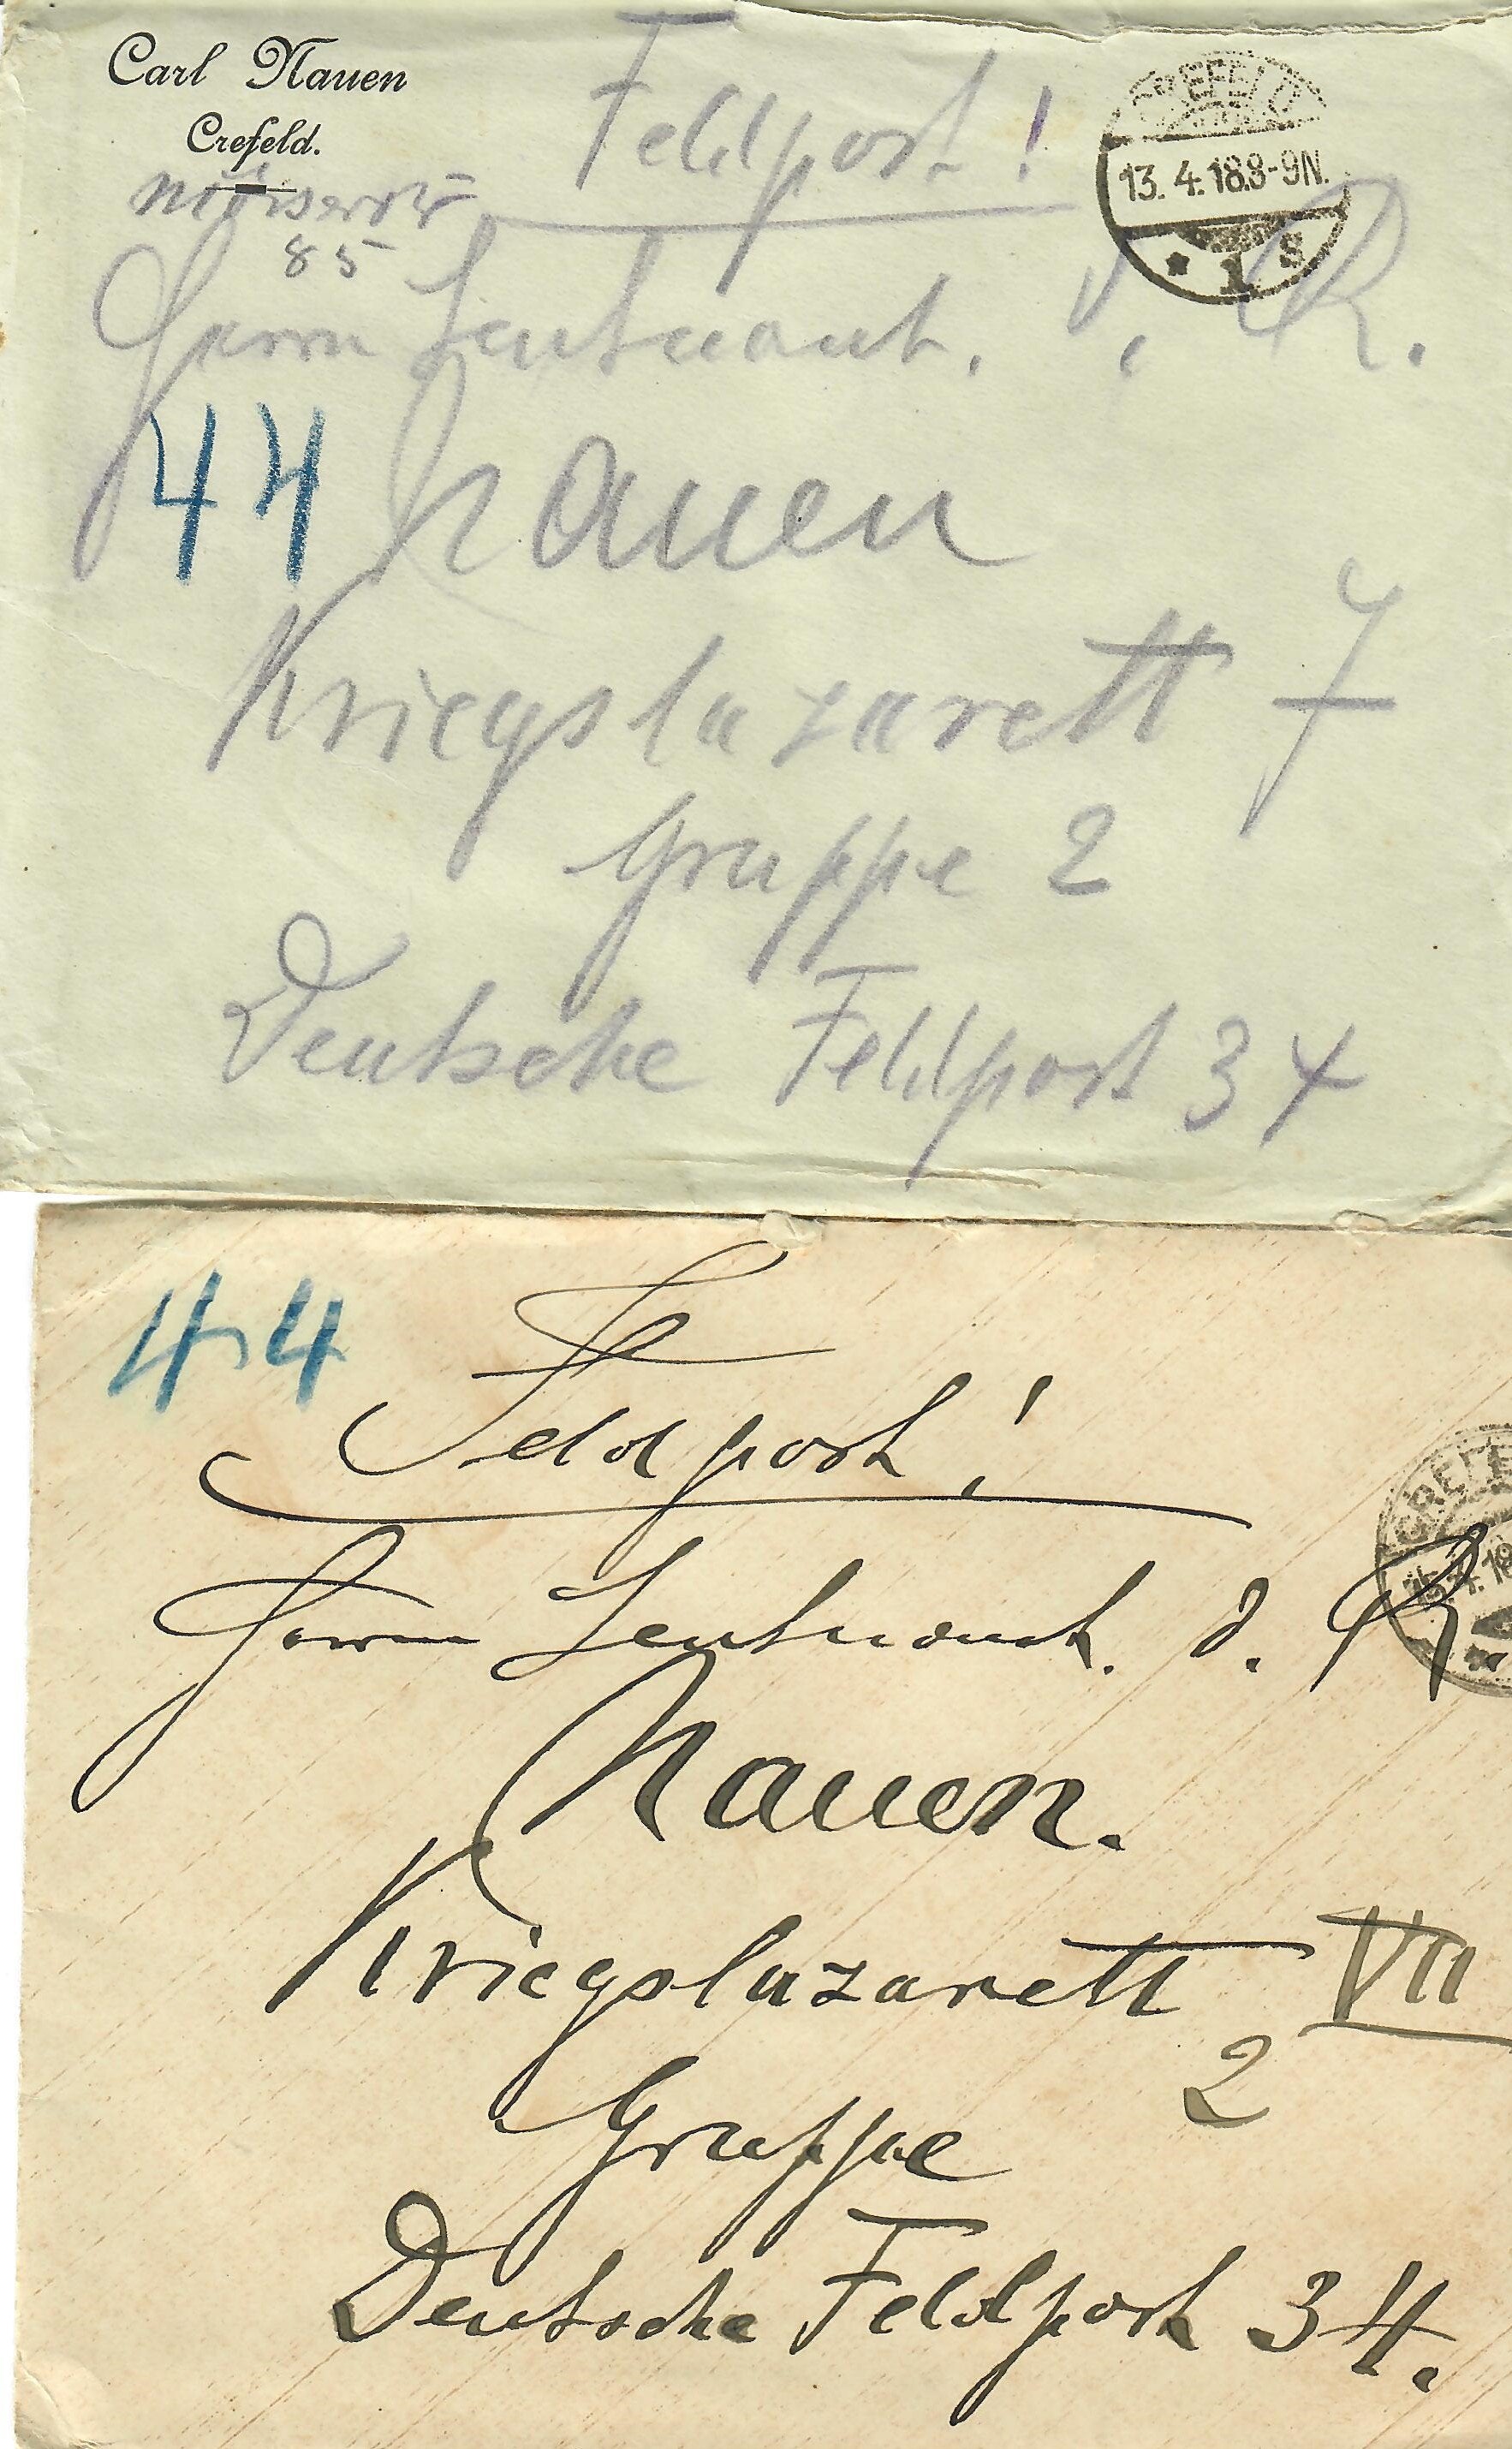 Carl Nauen
Crefeld.
Mörserstr
85
Feldpost!
CREFELD
13.4.18.8-9N.
* 1 s
Herrn Leutnant. d. R.
44
Nauen
Kriegslazarett 7
Gruppe 2
Deutsche Feldpost 34
44
Feldpost!
CREFE
Herrn Leutnant. d. R.
Nauen.
Kriegslazarett VII
2
Gruppe
Deutsche Feldpost 34.